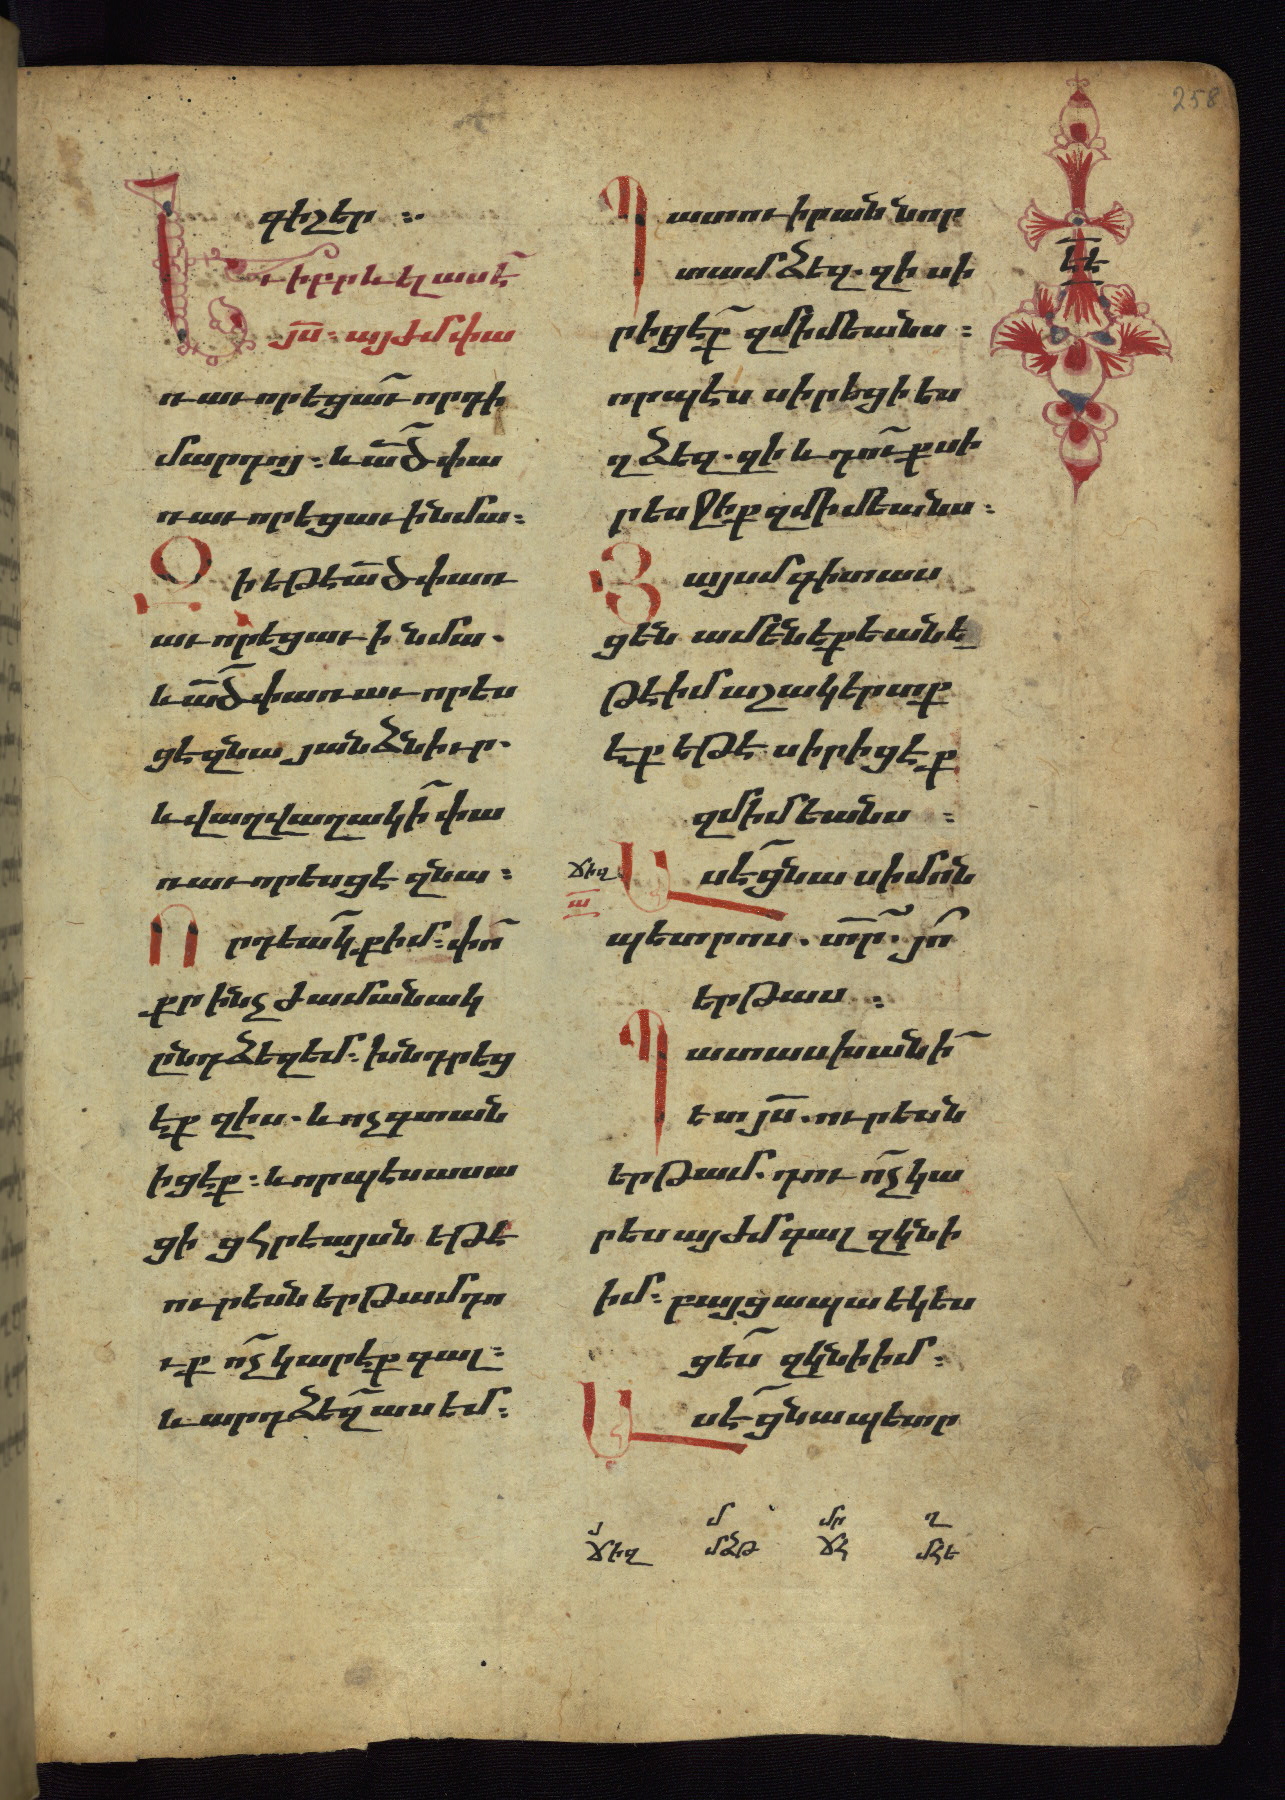 258
գիշեր :.
Իւիբրև ել ասէ՛
յս̅ : այժմ փա
ռաւորեցաւ որդի
մարդոյ : և ա̅ծ փա
ռաւորեցաւ ի նմա :
Զի եթէ ա̅ծ փառ
աւորեցաւ ի նմա .
և ա̅ծ փառաւորես
ցէ զնա յանձնիւր .
և վաղվաղակի փա
ռաւորեսցէ զնա :
Որդեակք իմ : փո
քր ինչ ժամանակ
ընդ ձեզ եմ : խնդրեց
էք զիս . և ոչ գտան
իցէք : և որպէս ասա
ցի ցհրեայսն եթէ
ուր ես երթամ դո
ւք ոչ կարէք գալ :
և արդ ձեզ ասեմ :
Պատուիրան նոր
տամ ձեզ . զի սի
րիցէք զմիմեանս :
որպէս սիրեցի ես
զձեզ . զի և դուք սի
րեսջիք զմիմեանս :
Յայսմ գիտաս
ցեն ամենեքեան ե
թէ իմ աշակերտք
էք եթէ սիրիցէք
զմիմեանս :
ճիզ
ա
Ասէ ցնա սիմոն
պետրոս . տր̅ . յո՛
երթաս :
Պատասխանի
ետ յս̅ . ուր ես
երթամ . դու ոչ կա
րես այժմ գալ զկնի
իմ : բայց ապա եկես
ցես զկնի իմ :
Ասէ ցնա պետր
ԷԷ
յ մ մր ղ
ճիզ մձթ ճհ մհե